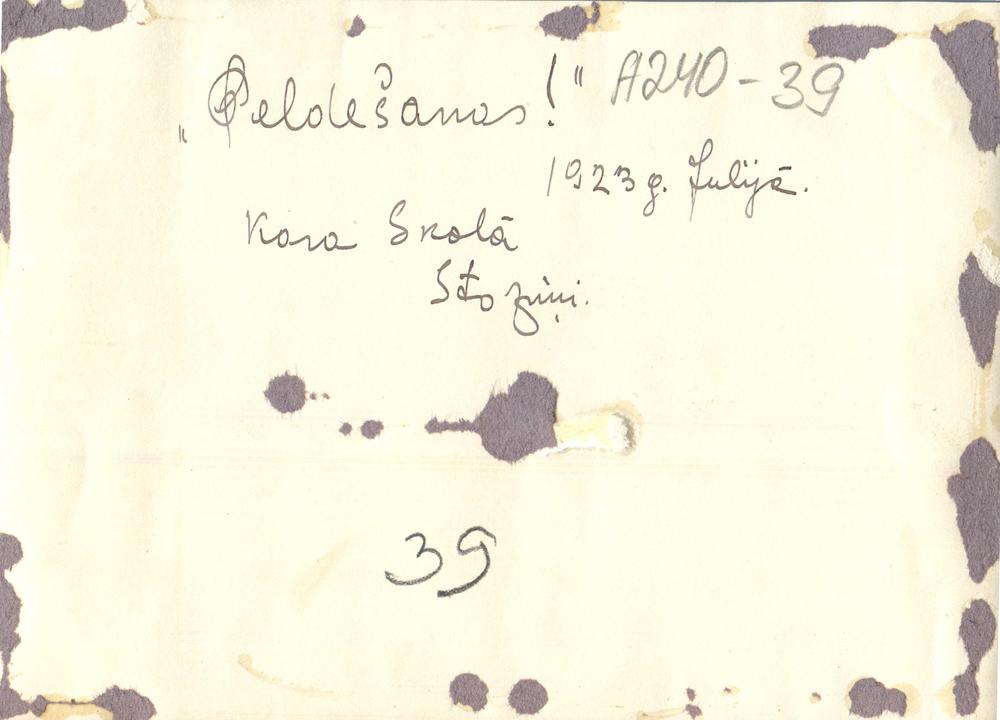 „Peldēšanas!" A240-39
1923 g. Julijā.
Kara Skolā
39